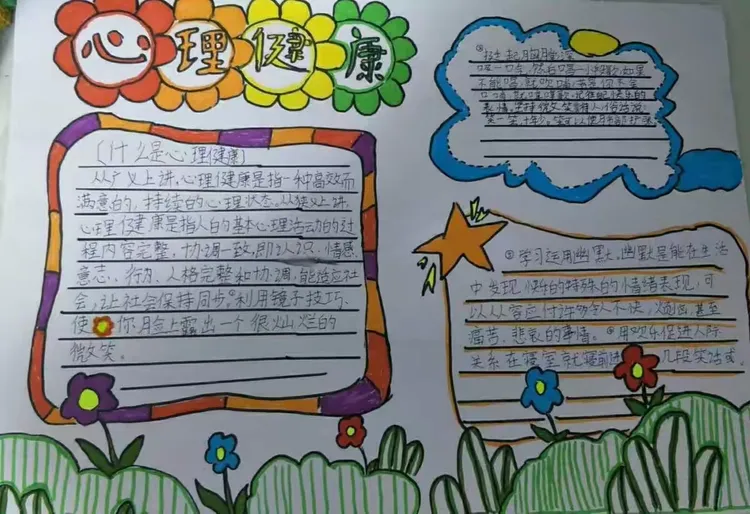 心理健康
(什么是心理健康)
从广义上讲,心理健康是指一种高效而
满意的,持续的心理状态。从狭义上讲,
心理健康是指人的基本心理活动的过
程内容完整,协调一致,即认识、情感、
意志、行为、人格完整和协调,能适应社
会,让社会保持同步。①利用镜子技巧、
使你脸上露出一个很灿烂的
微笑。
②挺起胸膛深
吸一口气,然后唱一小段歌,如果
不能唱,就吹口哨,
表情。坚持微笑
笑一笑,十年少。笑可以使
③学习运用幽默。幽默是能在生活
中发现快乐的特殊的情绪表现,可
以从容应付许多令人不快,烦恼甚至
痛苦、悲哀的事情。④用欢乐促进人际
关系在寝室就寝前进 几段笑话或